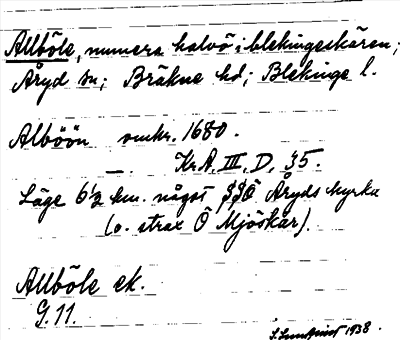 Allböle, numera halvö i blekingeskären;
Åryd sn; Bräkne hd; Blekinge l.
Alböön omkr. 1680.
— . Kr.A. III, D, 35.
Läge 6½ km. något SSÖ Åryds kyrka
(o. strax Ö Mjöskär).
Allböle ek.
G. 11
1938.